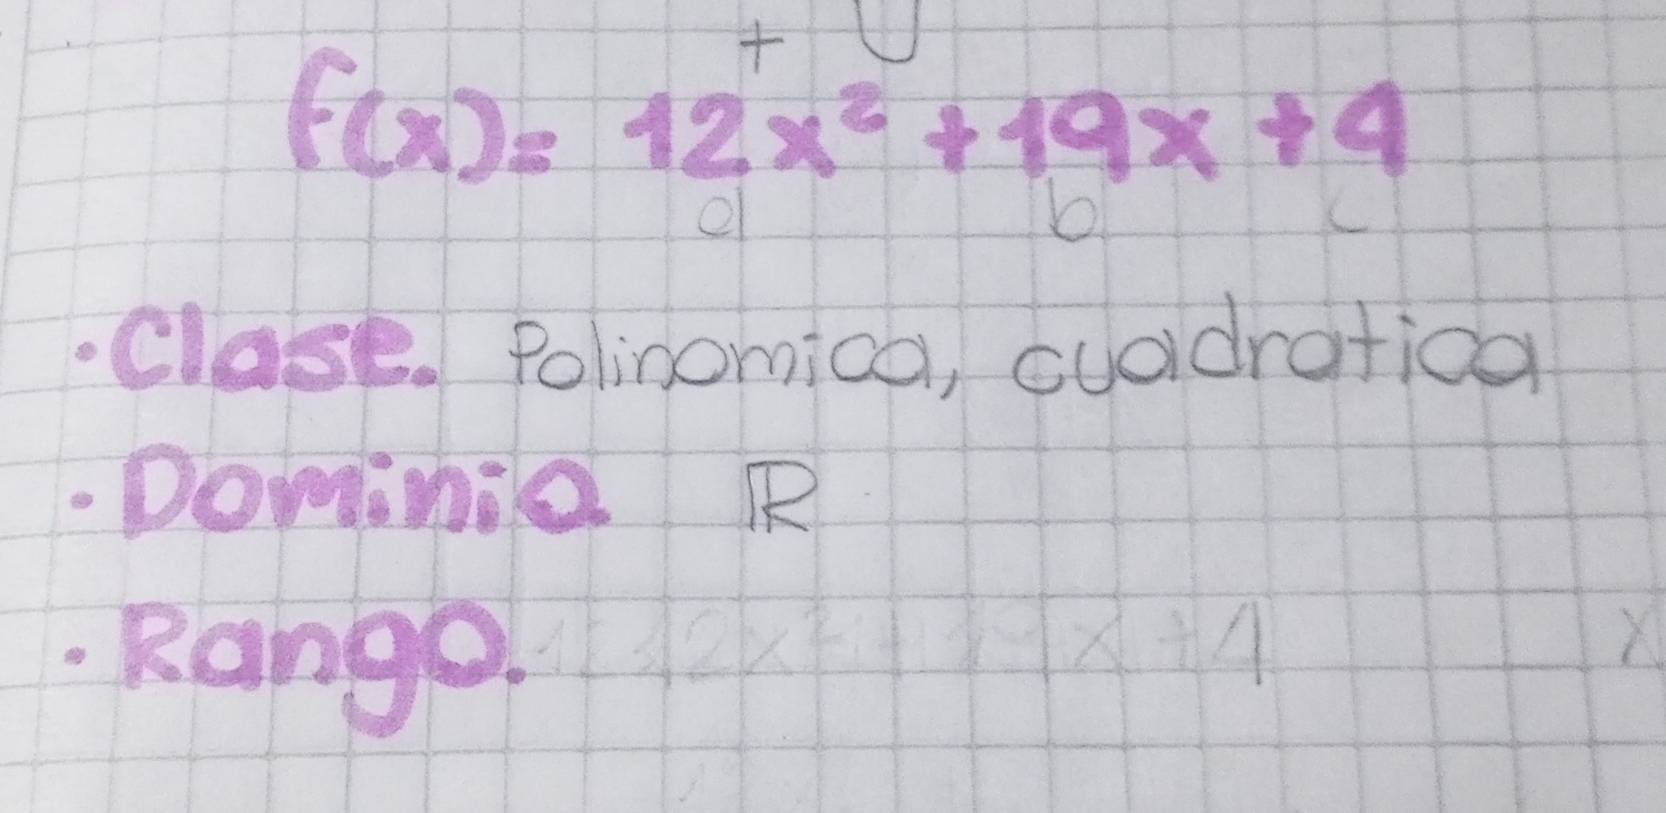 + U
f(x) = 12x² + 19x + 4
a b c
· Clase. Polinomica, cuadratica
· Dominio ℝ
· Rango.